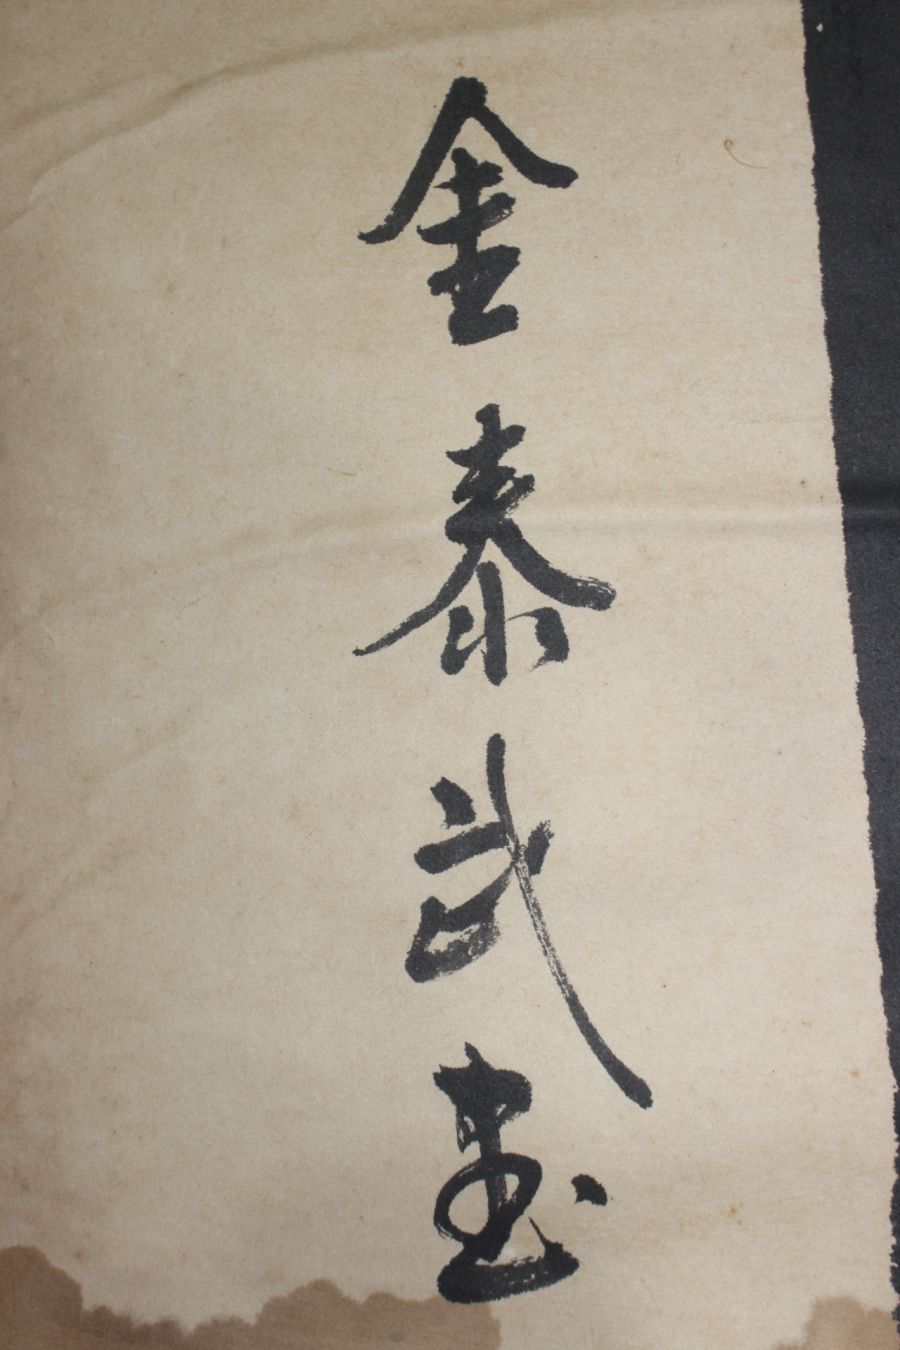 金泰武書